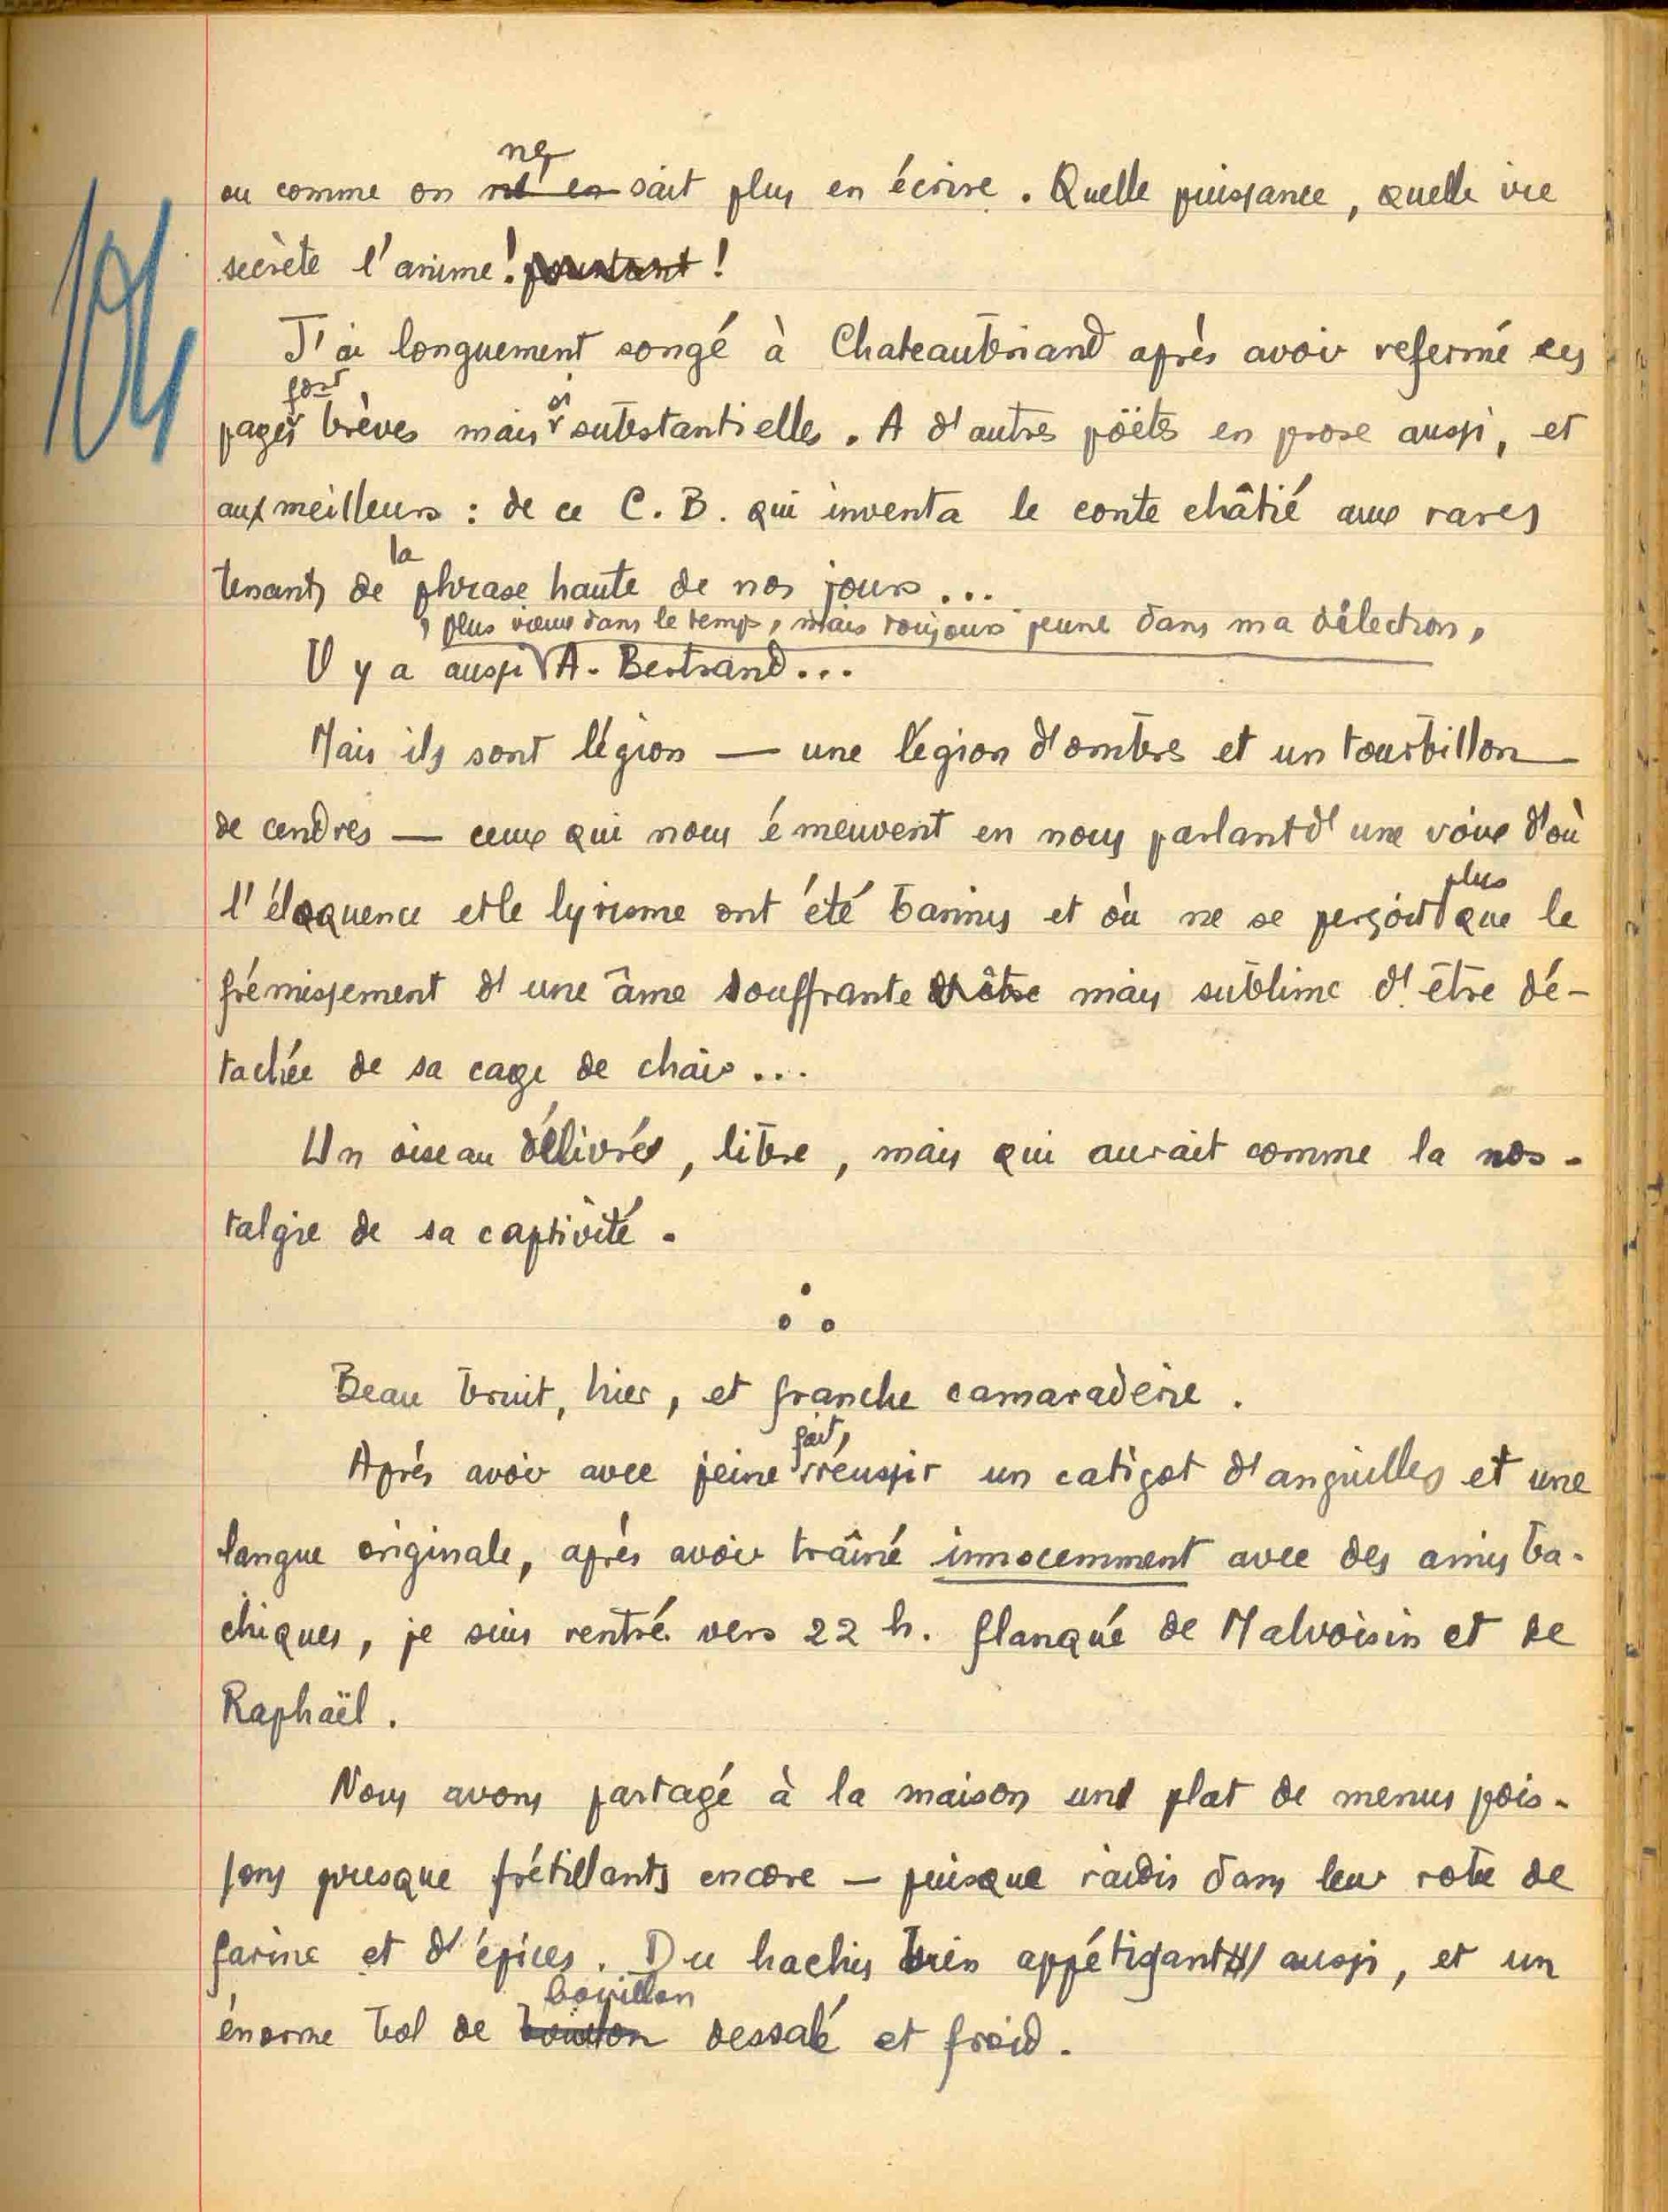 104
ne
ou comme on ne en sait plus en écrire. Quelle puissance, quelle vie
secrète l'anime! pourtant !
J'ai longuement songé à Chateaubriand après avoir refermé ces
fort si
pages brèves mais substantielles. A d'autres poëtes en prose aussi, et
aux meilleurs : de ce C. B. qui inventa le conte châtié aux rares
la
tenants de phrase haute de nos jours...
, plus vieux dans le temps, mais toujours jeune dans ma dilection,
Il y a aussi A. Bertrand...
Mais ils sont légion — une légion d'ombres et un tourbillon
de cendres — ceux qui nous émeuvent en nous parlant d'une voix d'où
plus
l'éloquence et le lyrisme ont été bannis et où ne se perçoit que le
frémissement d'une âme souffrante d'être mais sublime d'être dé-
tachée de sa cage de chair...
Un oiseau délivré, libre, mais qui aurait comme la nos-
talgie de sa captivité.
Beau bruit, hier, et franche camaraderie.
fait,
Après avoir avec peine réussir un catigot d'anguilles et une
langue originale, après avoir traîné innocemment avec des amis ba-
chiques, je suis rentré vers 22 h. flanqué de Malvoisin et de
Raphaël.
Nous avons partagé à la maison un plat de menus pois-
sons presque frétillants encore — puisque raidis dans leur robe de
farine et d'épices. Du hachis très appétissant aussi, et un
bouillon
énorme bol de bouillon dessalé et froid.